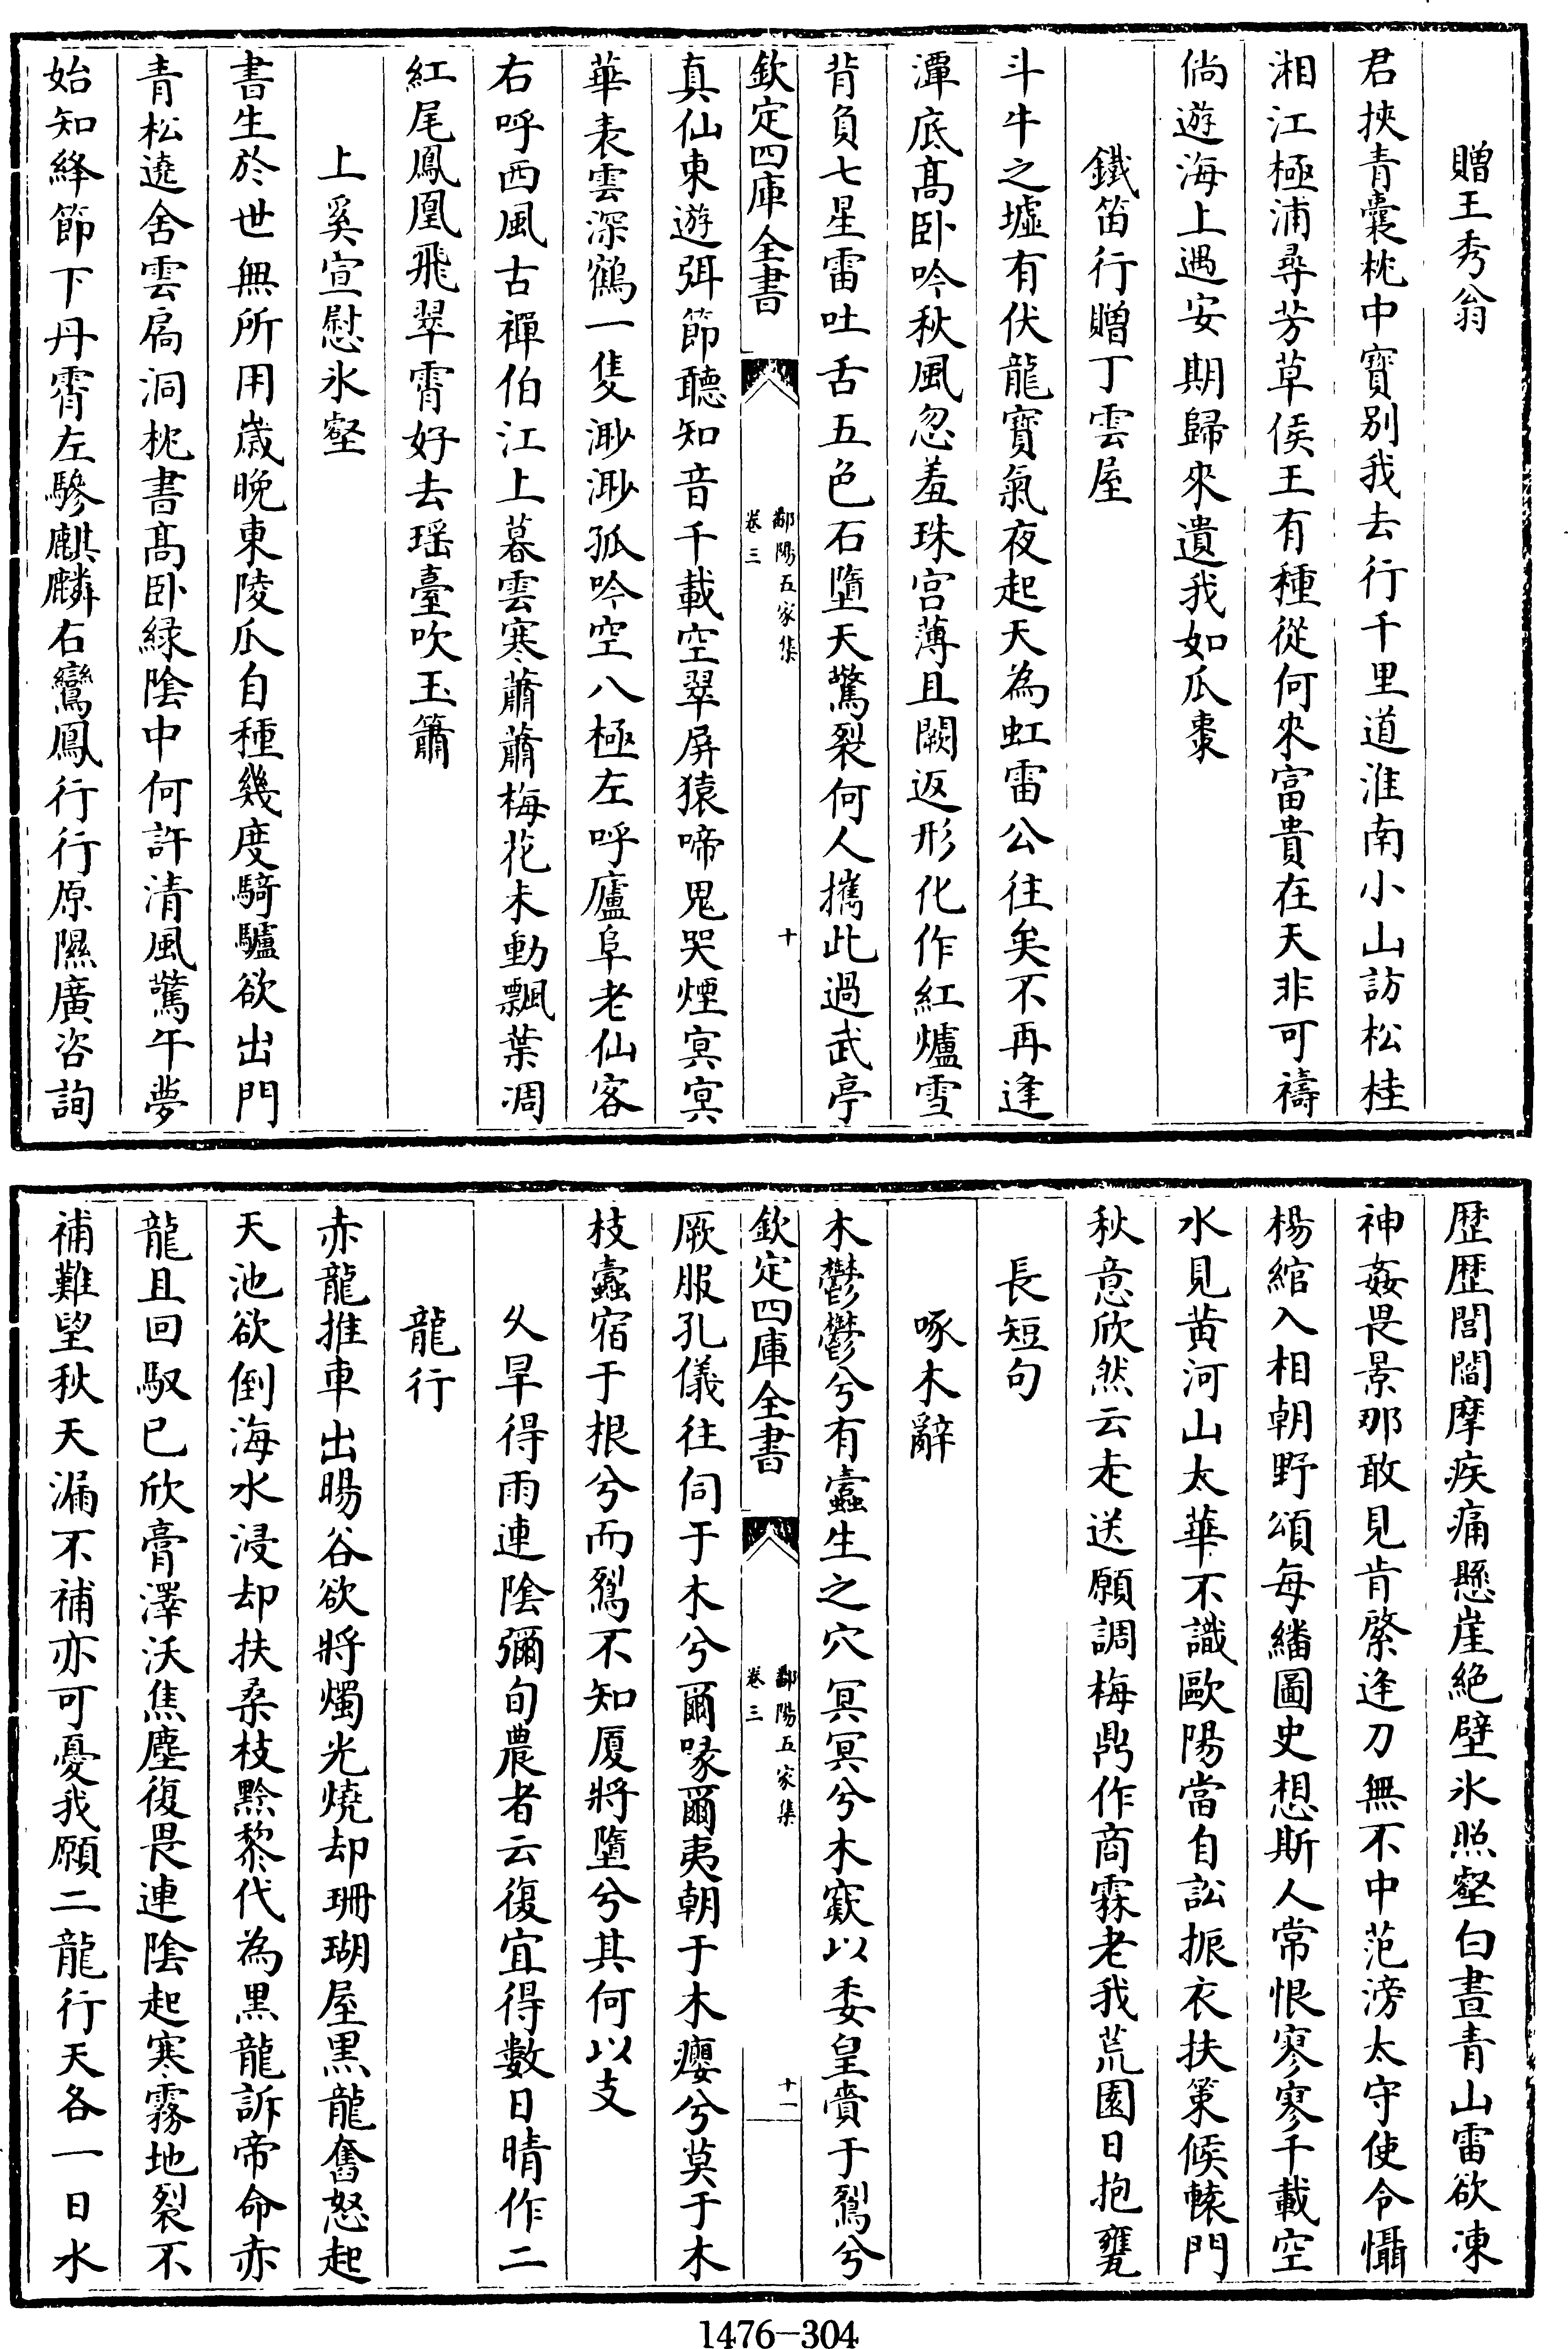 贈王秀翁
君挾青囊枕中寶别我去行千里道淮南小山訪松桂
湘江極浦尋芳草侯王有種從何來富貴在天非可禱
倘遊海上遇安期歸來遺我如瓜棗
鐵笛行贈丁雲屋
斗牛之墟有伏龍寶氣夜起天為虹雷公往矣不再逢
潭底髙卧吟秋風忽羞珠宫薄且闕返形化作紅爐雪
背負七星雷吐舌五色石墮天驚裂何人攜此過武亭
欽定四庫全書
鄱陽五家集
卷三
十
真仙東遊弭節聽知音千載空翠屏猿啼鬼哭煙冥冥
華表雲深鶴一隻渺渺孤吟空八極左呼廬阜老仙客
右呼西風古禪伯江上暮雲寒蕭蕭梅花未動飄葉凋
紅尾鳳凰飛翠霄好去瑶臺吹玉簫
上奚宣慰氷壑
書生於世無所用嵗晚東陵瓜自種幾度騎驢欲出門
青松遶舍雲扃洞枕書髙卧緑陰中何許清風驚午夢
始知絳節下丹霄左驂麒麟右鸞鳳行行原隰廣咨詢
歴歴閭閻摩疾痛懸崖絶壁氷照壑白晝青山雷欲凍
神姦畏景那敢見肯綮逢刀無不中范滂太守使令懾
楊綰入相朝野頌每繙圖史想斯人常恨寥寥千載空
水見黄河山太華不識歐陽當自訟振衣扶策候轅門
秋意欣然云走送願調梅鼎作商霖老我荒園日抱甕
長短句
啄木辭
木鬱鬱兮有蠧生之穴冥冥兮木窾以委皇賚于鴷兮
欽定四庫全書
鄱陽五家集
卷三
十一
厥服孔儀往伺于木兮爾喙爾夷朝于木癭兮莫于木
枝蠧宿于根兮而鴷不知厦將墮兮其何以支
乆旱得雨連陰彌旬農者云復宜得數日晴作二
龍行
赤龍推車出暘谷欲將燭光燒却珊瑚屋黒龍奮怒起
天池欲倒海水浸却扶桑枝黔黎代為黒龍訴帝命赤
龍且回馭已欣膏澤沃焦塵復畏連陰起寒霧地裂不
補難望秋天漏不補亦可憂我願二龍行天各一日水
1476-304